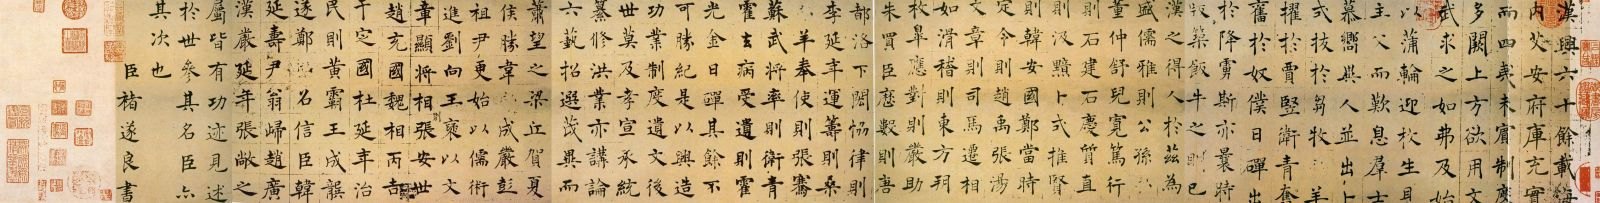 漢興六十餘載海
內乂安府庫充實
而四夷未賓制度
多闕上方欲用文
武求之如弗及始
以蒲輪迎枚生見
主父而歎息群士
慕嚮異人並出卜
式拔於芻牧羊
擢於賈豎衛青奮
奮於奴僕日磾出
於降虜斯亦曩時
版築飯牛之朋已
漢之得人於茲為
盛儒雅則公孫
董仲舒兒寬篤行
則石建石慶質直
則汲黯卜式推賢
則韓安國鄭當時
定令則趙禹張湯
文章則司馬遷相
如滑稽則東方朔
枚皋應對則嚴助
朱買臣歷數則唐
都洛下閎協律則
李延年運籌則桑
羊奉使則張騫
蘇武將率則衛青
霍去病受遺則霍
光金日磾其餘不
可勝紀是以興造
功業制度遺文後
世莫及孝宣承統
纂修洪業亦講論
六藝招選茂異而
蕭望之梁丘賀夏
侯勝韋成嚴彭
祖尹更始以儒術
進劉向王褒以文
章顯將相張安世
趙充國魏相丙吉
于定國杜延年治
民則黃霸王成龔
遂鄭召信臣韓
延壽尹翁歸趙廣
漢嚴延年張敞之
屬皆有功迹見述
於世參其名臣亦
其次也
臣褚遂良書